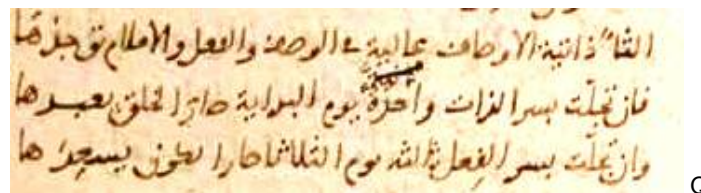 الثا ذاتية الاوصاف عالية في الوصف والفعل والا
فان تجلت بسر الذات واحدة يوم البداية صار الخلق يعبدها
وان تجلت بسر الفعل ثالثه يوم الثلاثا صار الكون يسعدها